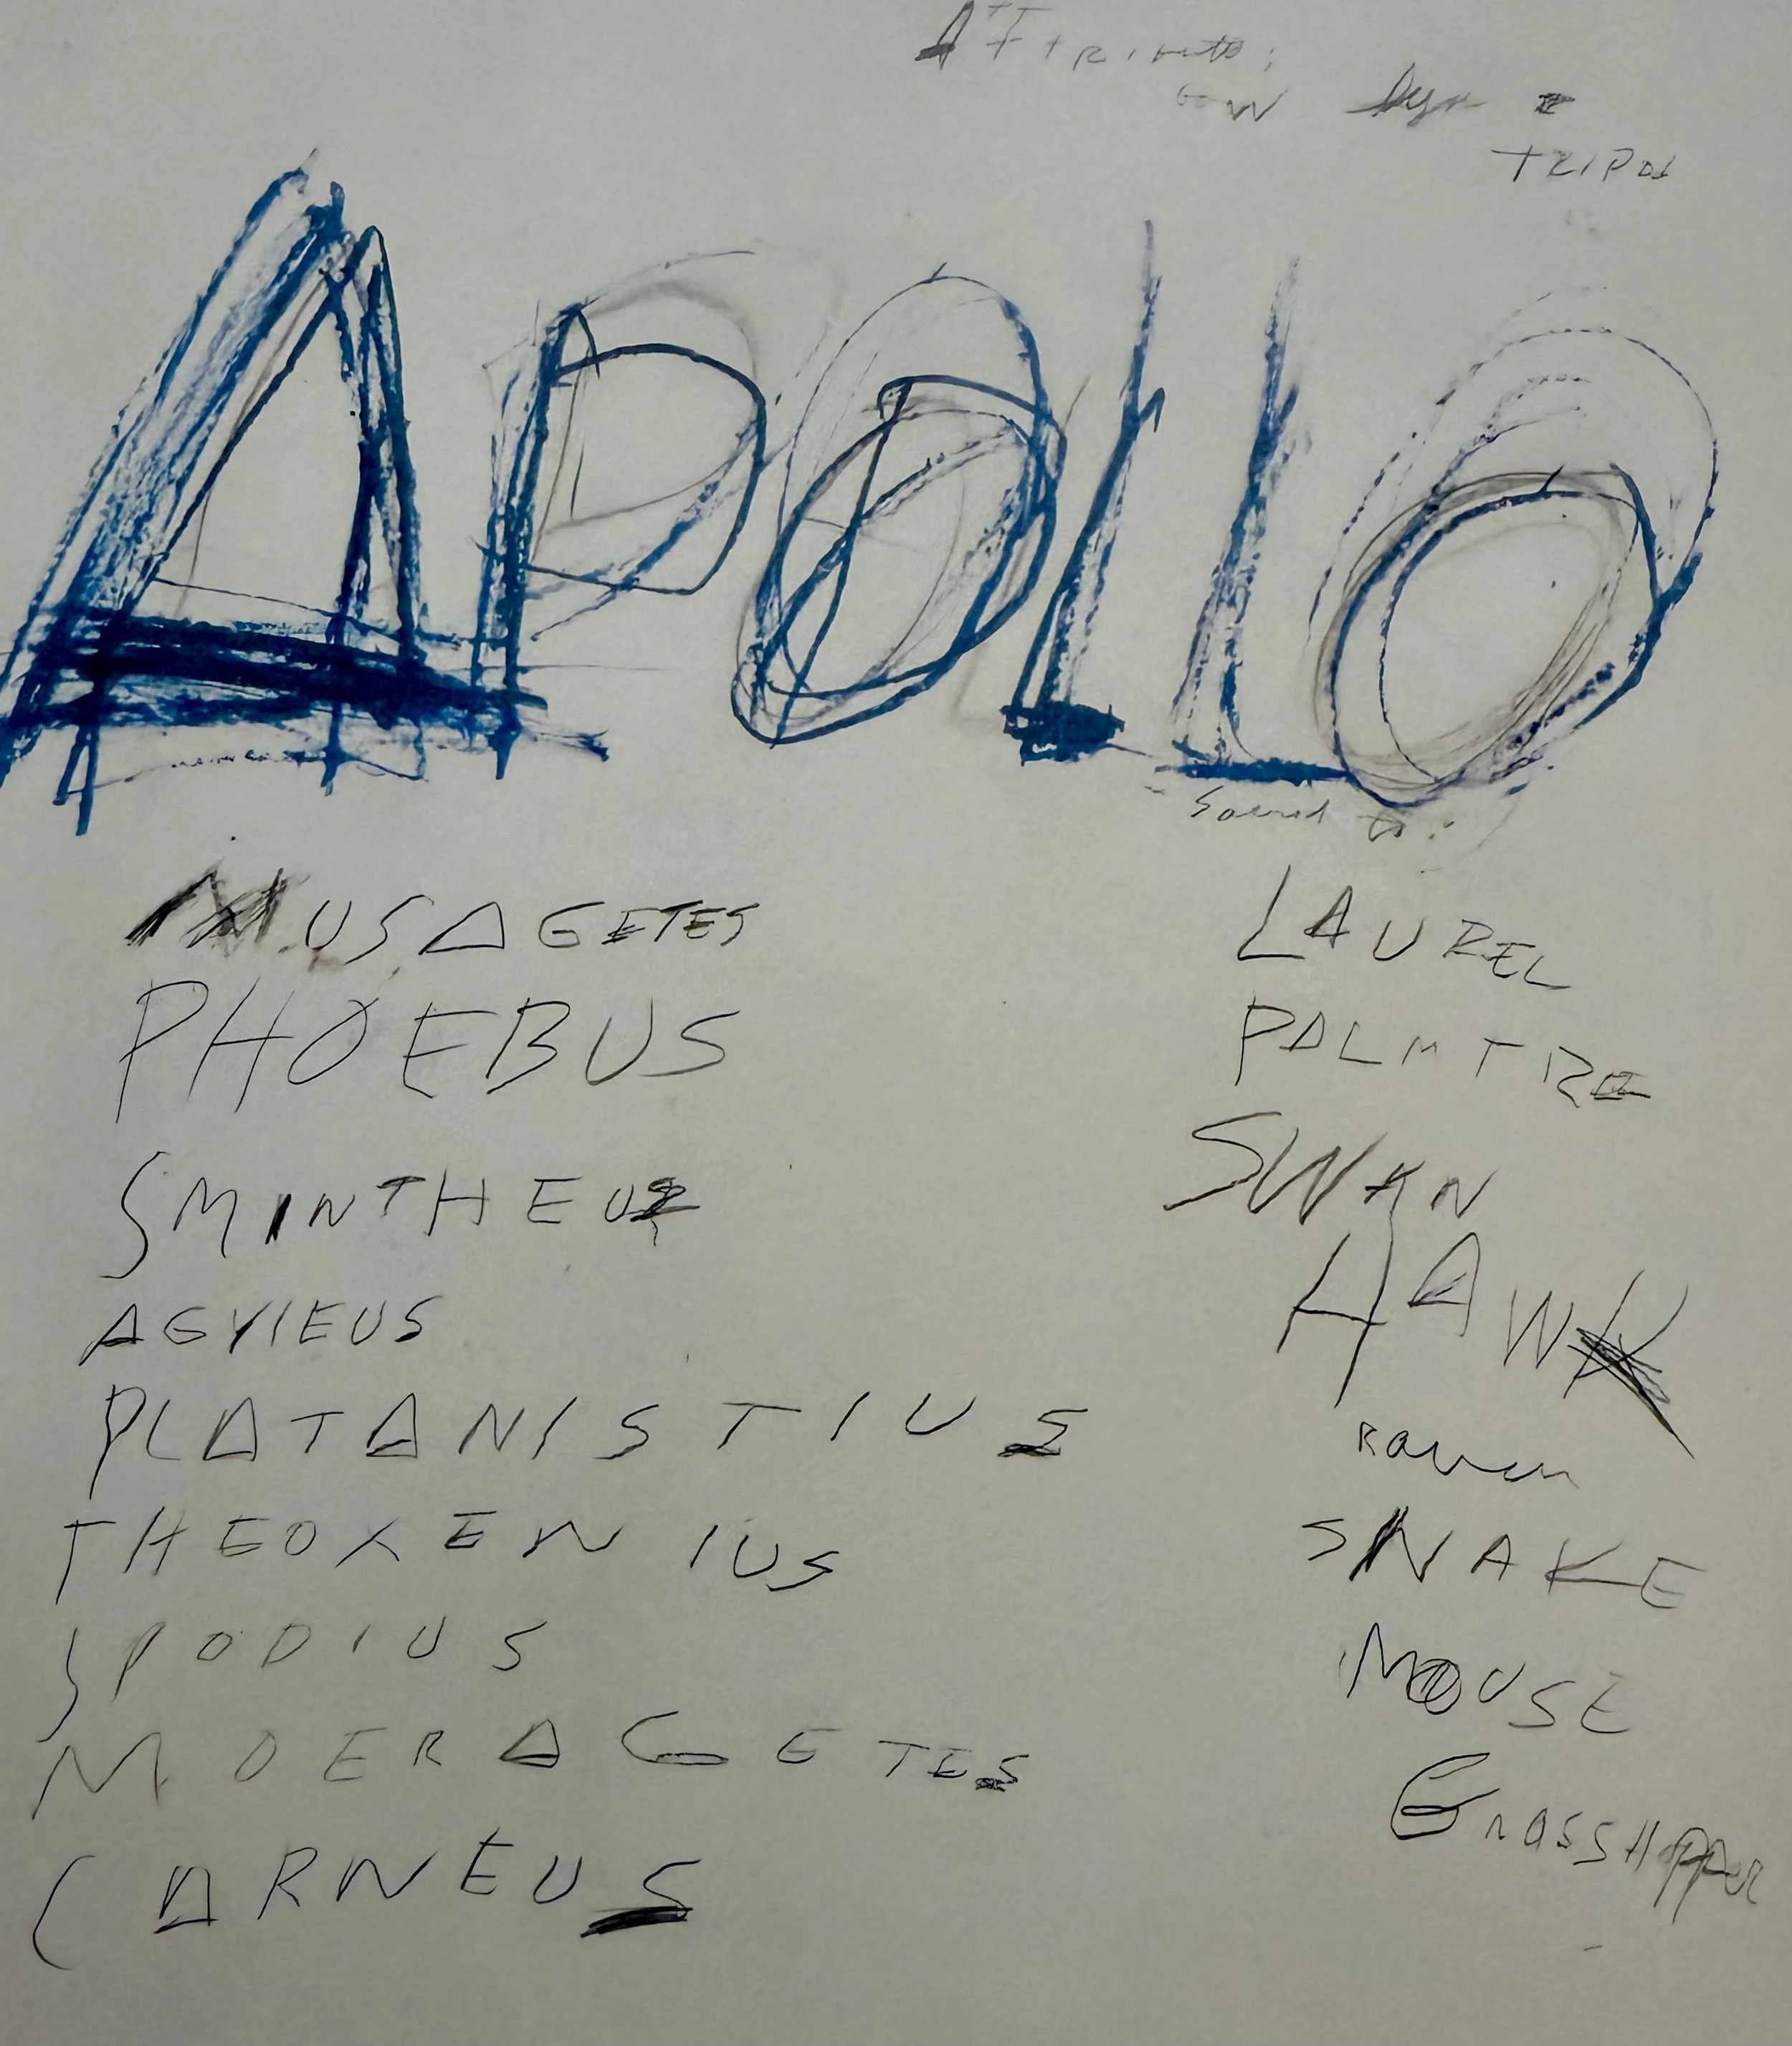 Attribute:
Bow Lyre
TRIPOD
APOLLO
Sacred to:
MUSAGETES
LAUREL
PHOEBUS
PALMTREE
SMINTHEUS
SWAN
HAWK
AGYIEUS
PLATANISTIUS
Raven
THEOXENIUS
SNAKE
SPODIUS
MOUSE
MOERAGETES
GrassHopper
CARNEUS